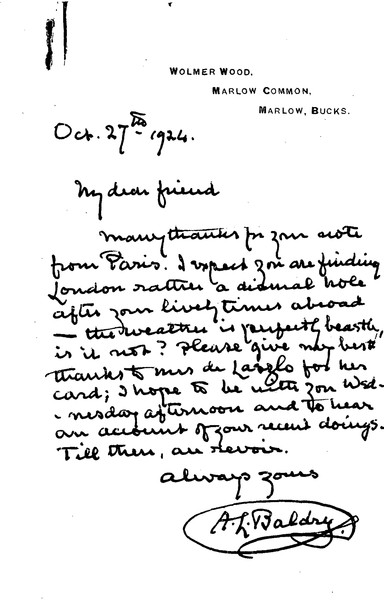 WOLMER WOOD,
MARLOW COMMON,
MARLOW, BUCKS.
Oct. 27th 1924.
My dear friend
Many thanks for your note
from Paris. I expect you are finding
London rather a dismal hole
after your lively times abroad
— the weather is perfectly beastly,
is it not? Please give my best
thanks to Mrs de Laszlo for her
card; I hope to be with you Wed-
-nesday afternoon and to hear
an account of your recent doings.
Till then, au revoir.
Always yours
A. L. Baldry